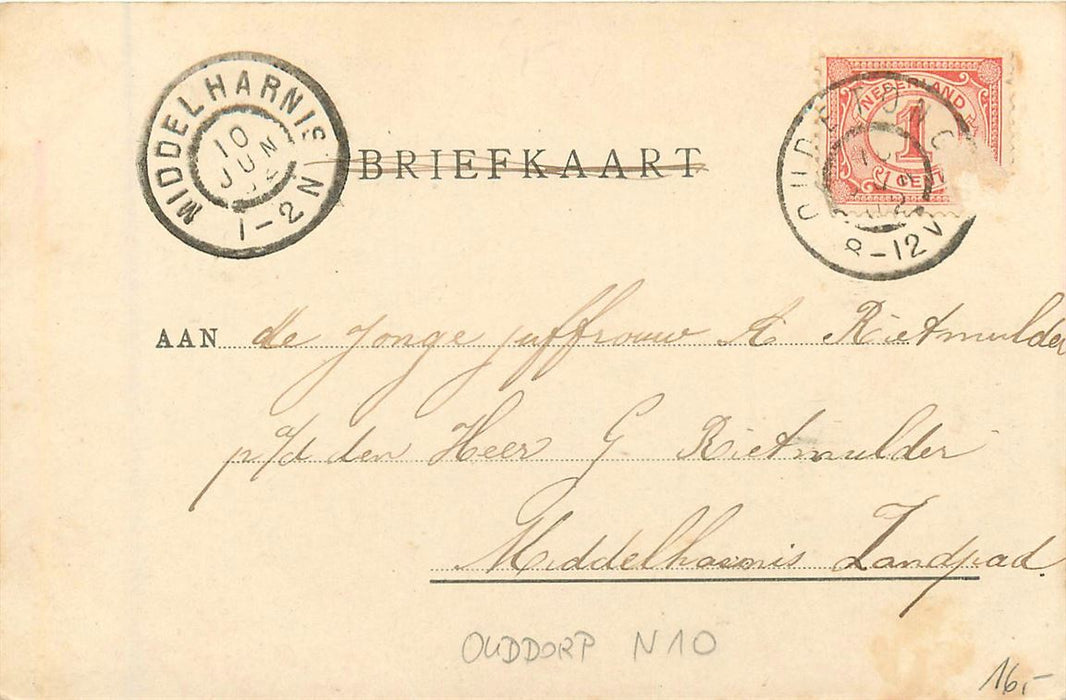 MIDDELHARNIS
10
JUN
1-2N
BRIEFKAART
NEDERLAND
1
CENT
8-12V
AAN de Jonge juffrouw A Rietmulder
p/d den Heer G Rietmulder
Middelharnis Zandpad
OUDDORP N10
16,-